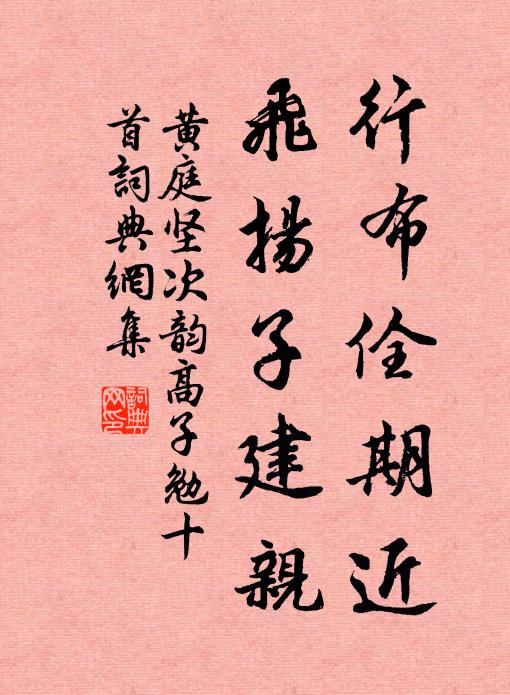 行布佺期近
飛揚子建親
黄庭坚次韵高子勉十
首詞典網集
詞典
网印